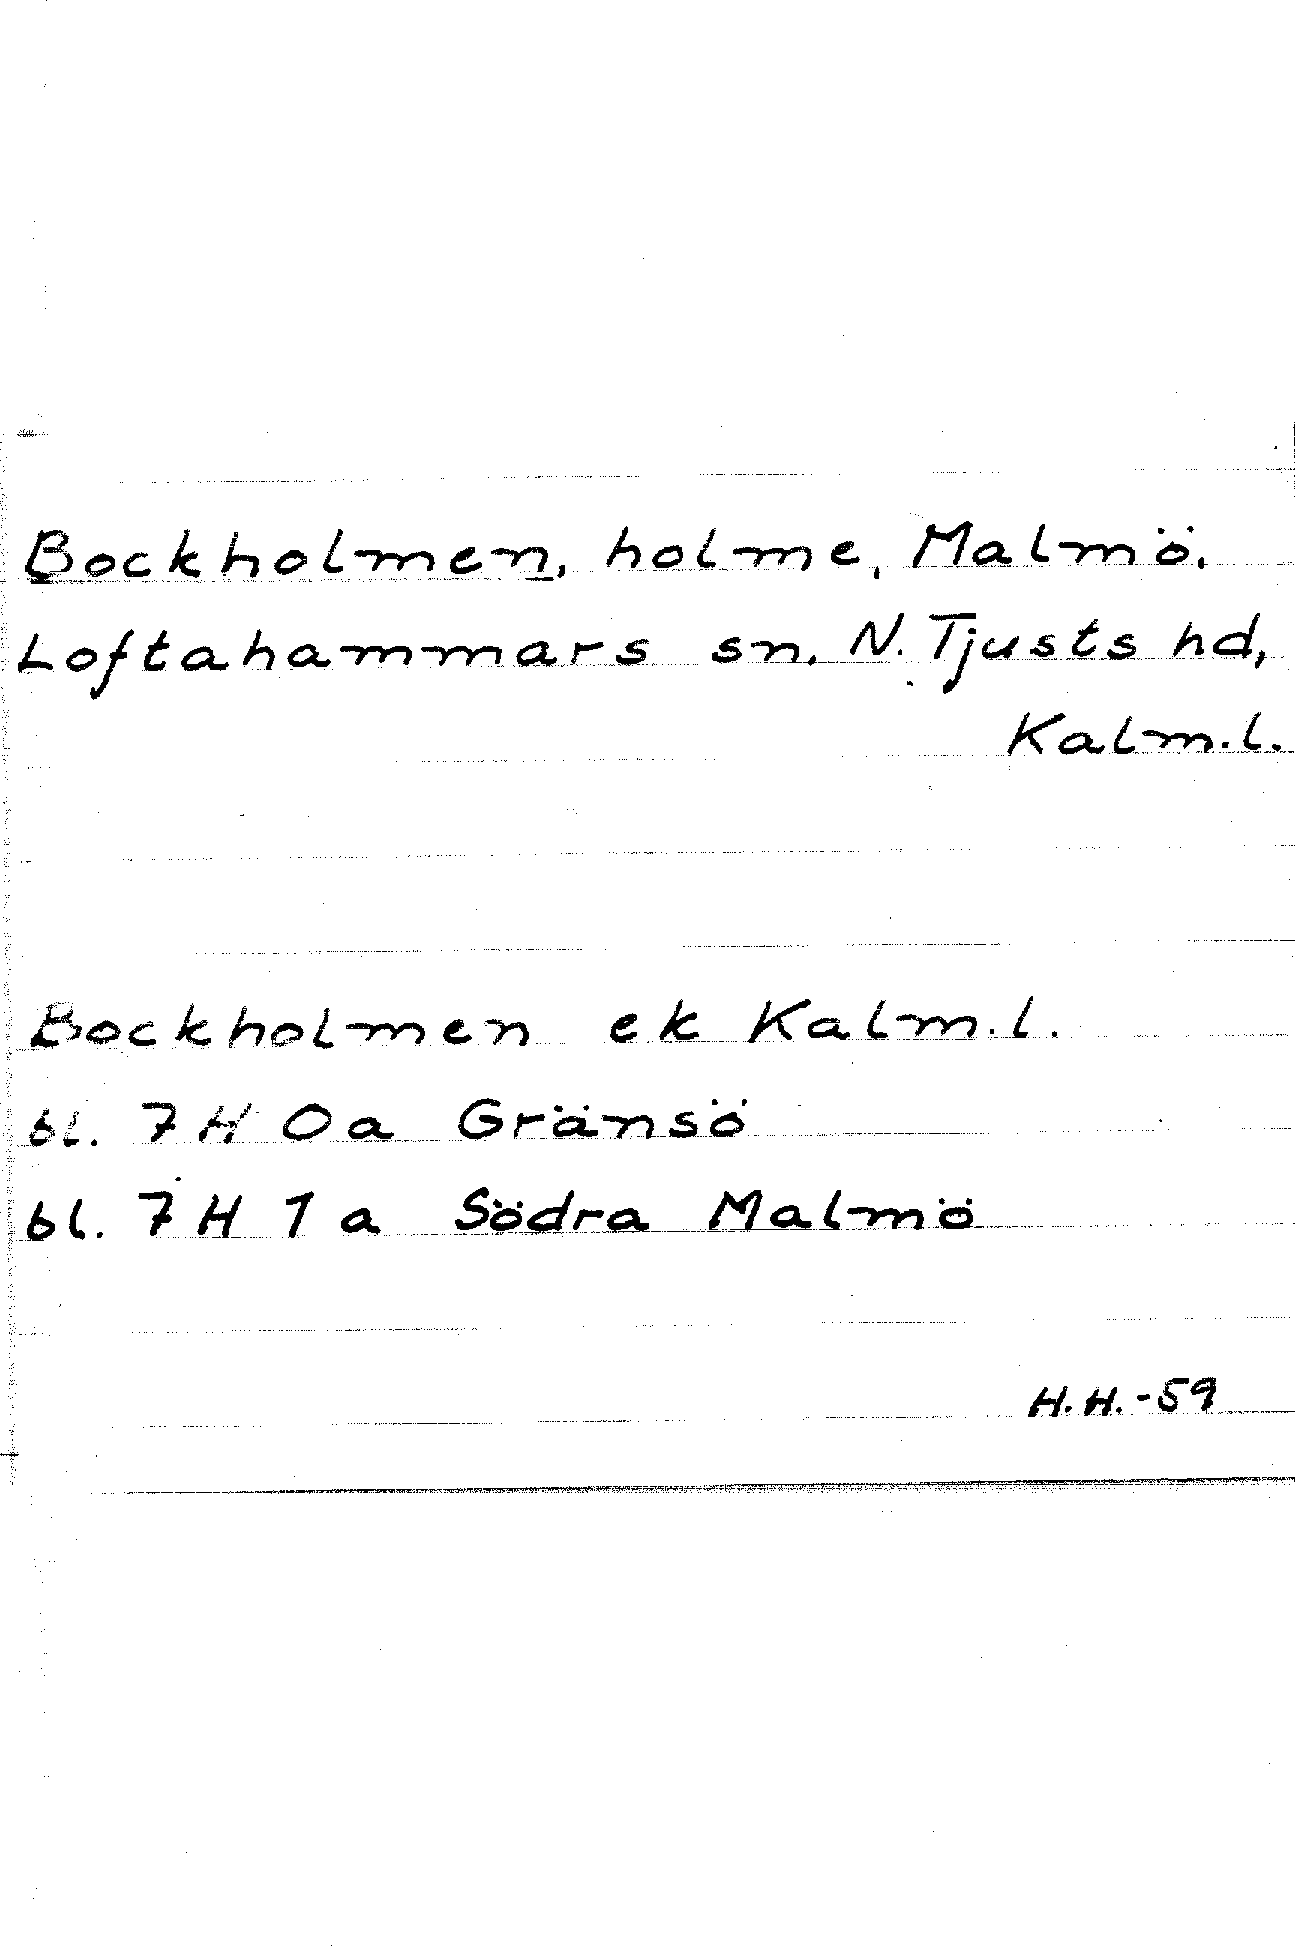 Bockholmen, holme, Malmö.
Loftahammars sn, N. Tjusts hd,
Kalm.l.
Bockholmen ek Kalm.l.
bl. 7 H 0a Gränsö
bl. 7 H 1a Södra Malmö
H.H.-59